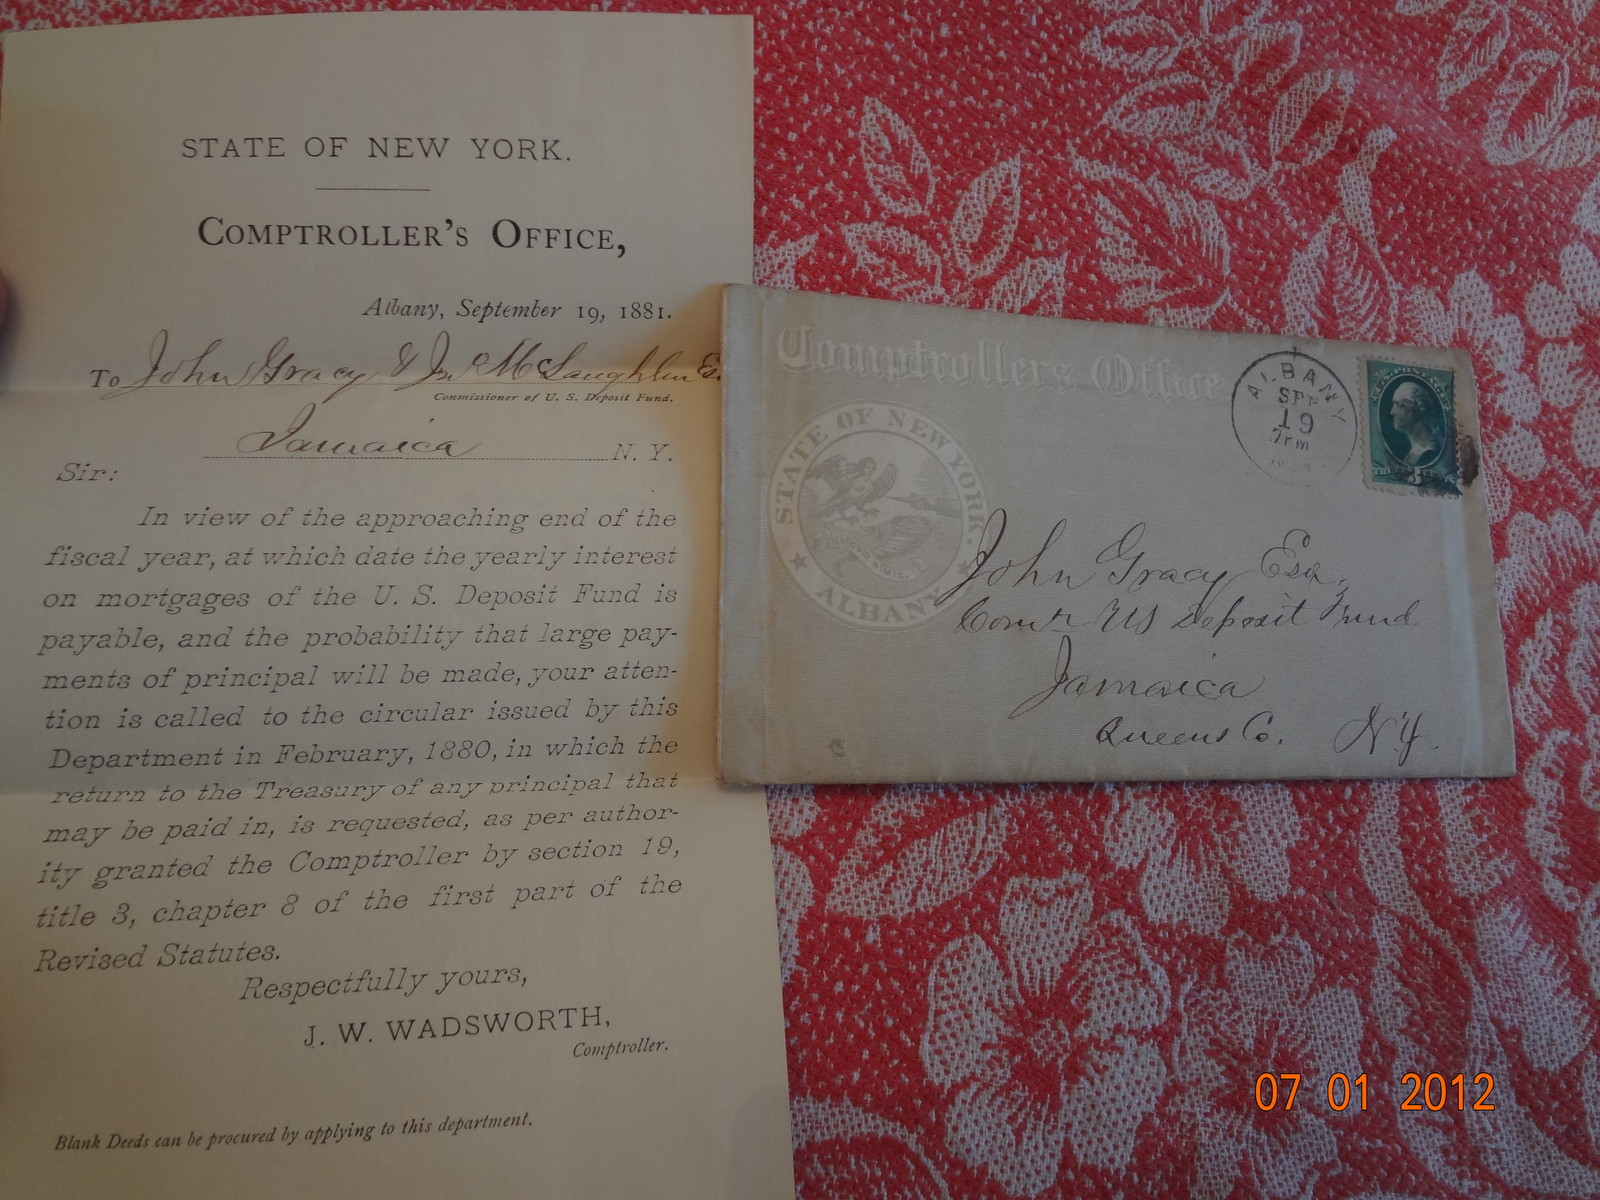 STATE OF NEW YORK.
COMPTROLLER'S OFFICE,
Albany, September 19, 1881.
To John Gracy & Jno McLaughlin Es
Commissioner of U. S. Deposit Fund.
Jamaica N. Y.
Sir:
In view of the approaching end of the
fiscal year, at which date the yearly interest
on mortgages of the U. S. Deposit Fund is
payable, and the probability that large pay-
ments of principal will be made, your atten-
tion is called to the circular issued by this
Department in February, 1880, in which the
return to the Treasury of any principal that
may be paid in, is requested, as per author-
ity granted the Comptroller by section 19,
title 3, chapter 8 of the first part of the
Revised Statutes.
Respectfully yours,
J. W. WADSWORTH,
Comptroller.
Blank Deeds can be procured by applying to this department.
Comptrollers Office,
STATE OF NEW YORK.
ALBANY
ALBANY
SEP
19
7PM
U.S. POSTAGE
3
John Gracy Esq,
Comr US Deposit Fund
Jamaica
Queens Co. NY.
07 01 2012